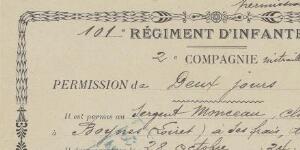 permission
101e RÉGIMENT D'INFANTE
2e COMPAGNIE
PERMISSION de Deux jours
Il est permis au Sergent Monceau
à Boynes (Loiret) à ses frais, d
28 octobre